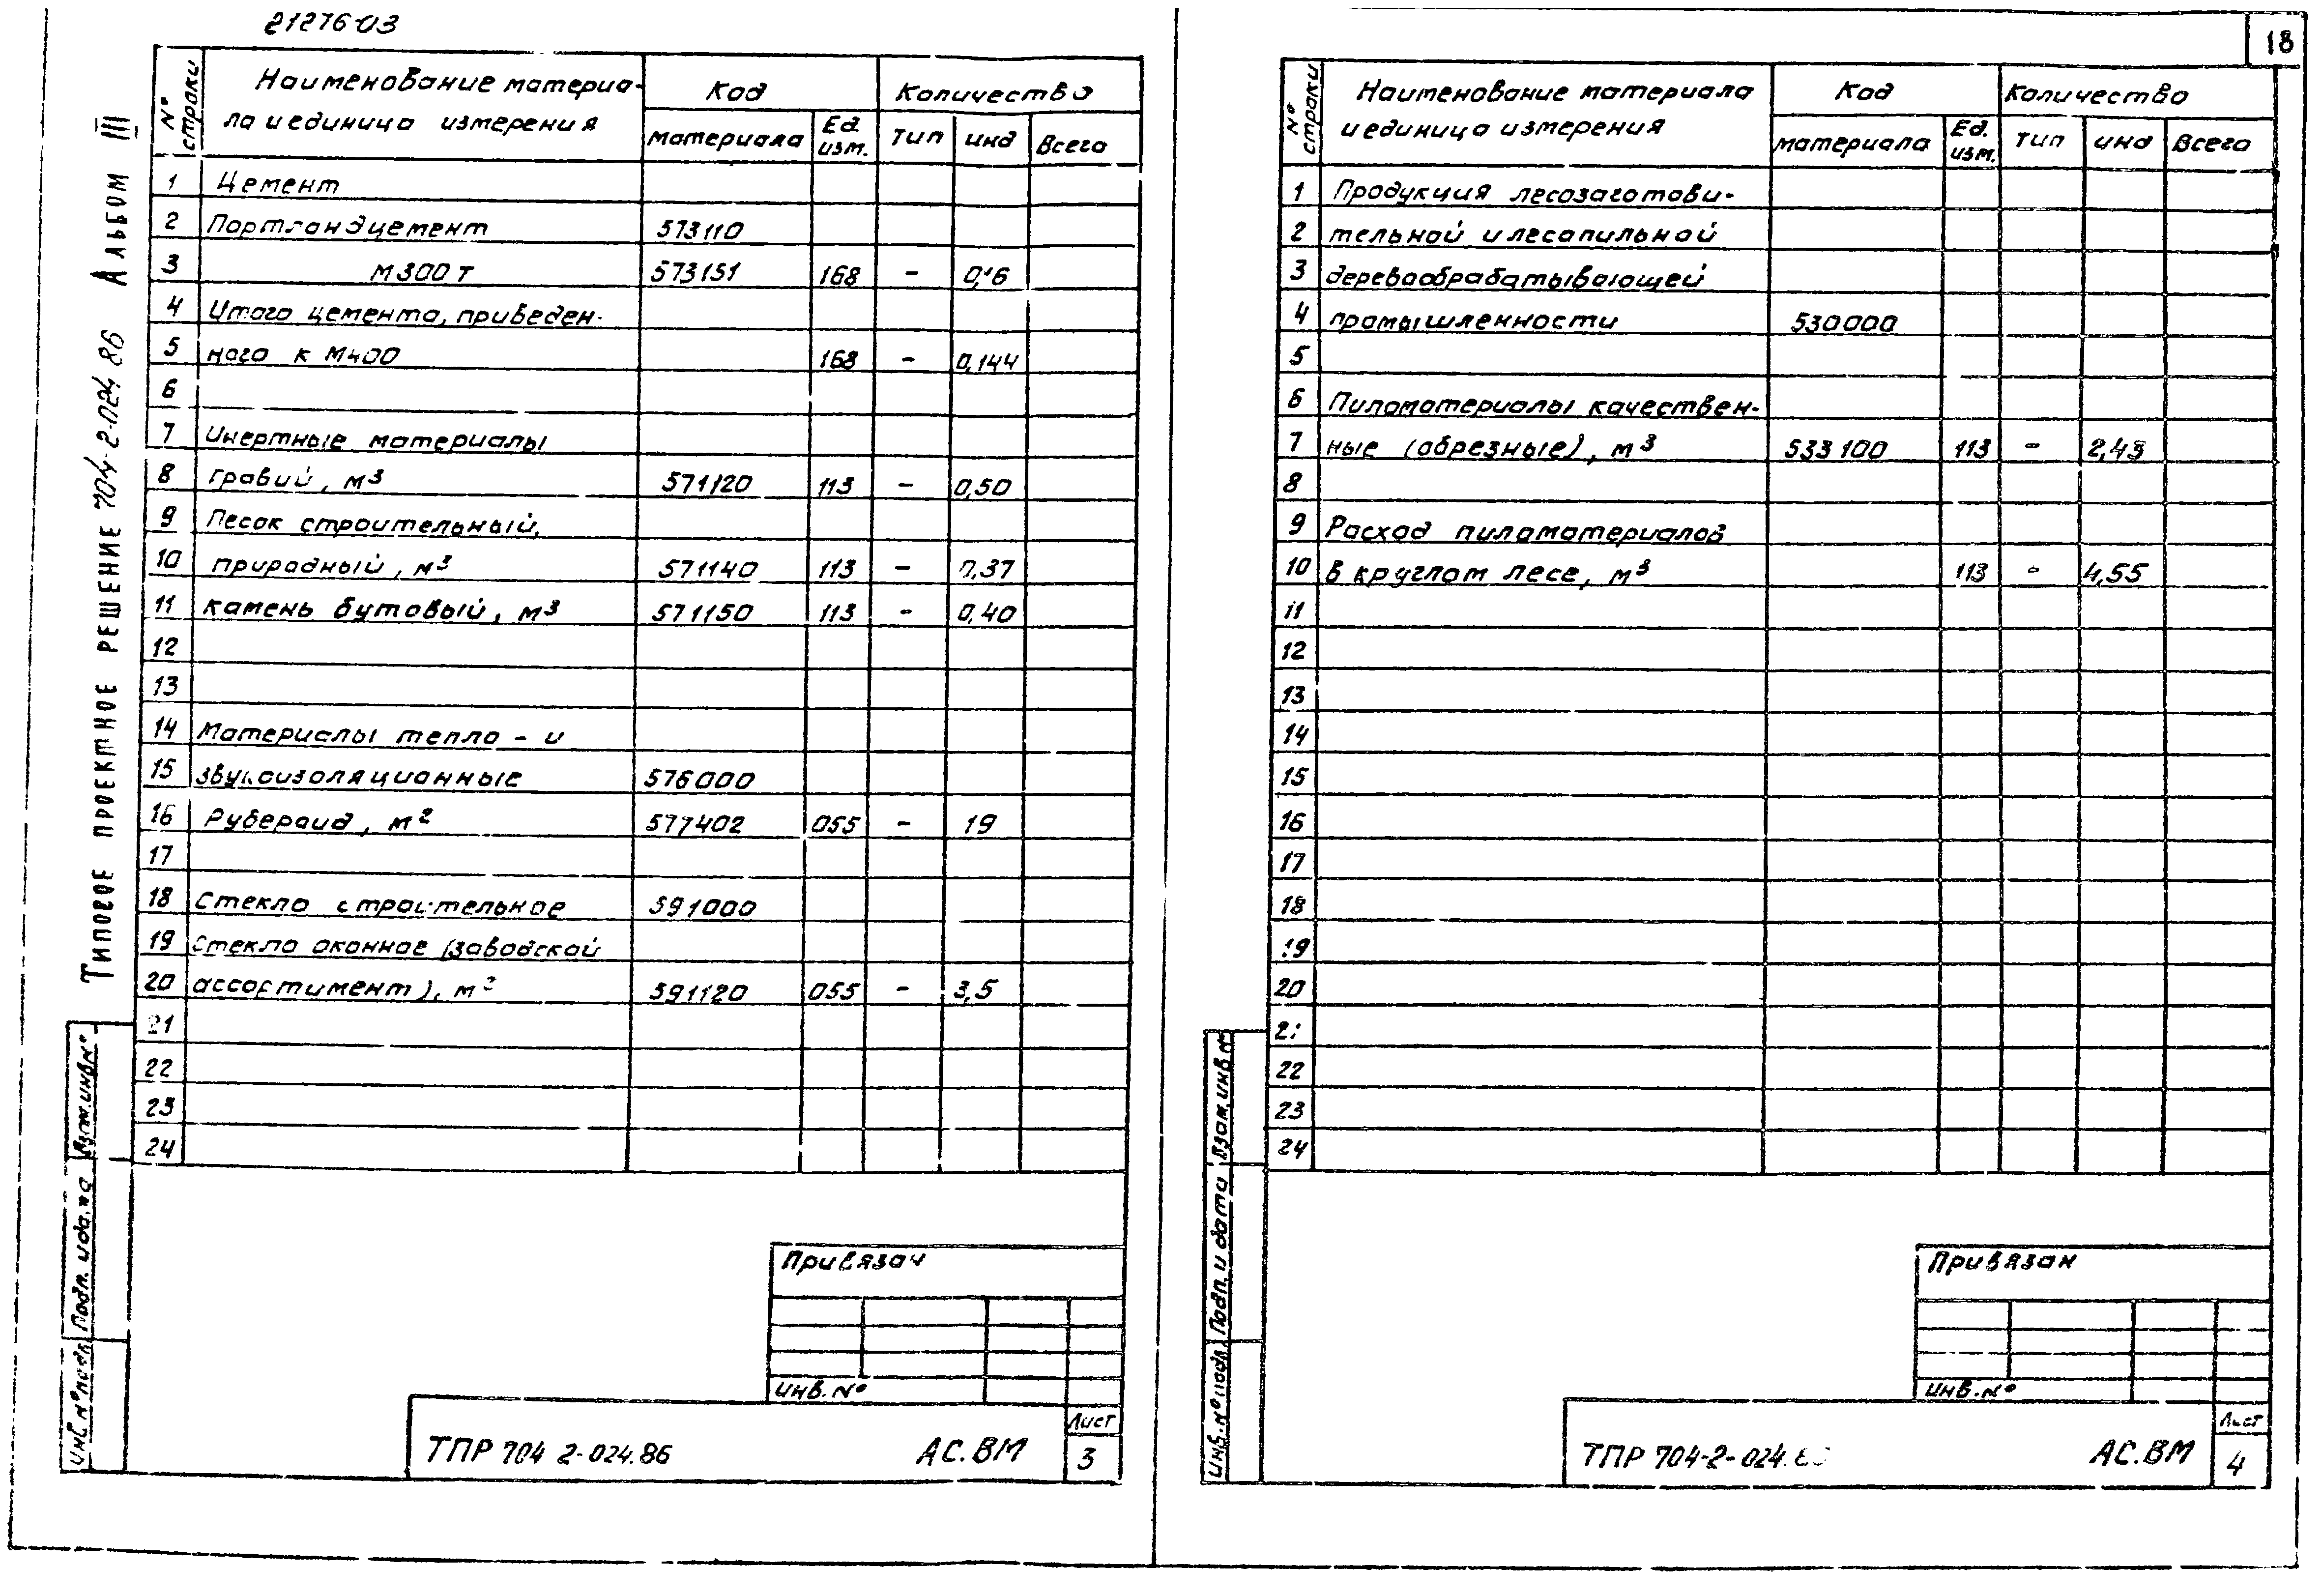 21276-03
18
Типовое проектное решение 704-2-024.86 Альбом III
№ строки
Наименование материа-
ла и единица измерения
Код
Количество
материала
Ед. изм.
тип
инд
Всего
1 Цемент
2 Портландцемент 573110
3 М300 т 573151 168 - 0,16
4 Итого цемента, приведен-
5 ного к М400 168 - 0,144
6
7 Инертные материалы
8 гравий, м³ 571120 113 - 0,50
9 Песок строительный,
10 природный, м³ 571140 113 - 0,37
11 камень бутовый, м³ 571150 113 - 0,40
12
13
14 Материалы тепло - и
15 звукоизоляционные 576000
16 Рубероид, м² 577402 055 - 19
17
18 Стекло строительное 591000
19 Стекло оконное (заводской
20 ассортимент), м² 591120 055 - 3,5
21
22
23
24
Взам. инв №
Подп. и дата
Инв. № подл
Привязан
Инв. №
ТПР 704 2-024.86 АС.ВМ
Лист
3
№ строки
Наименование материала
и единица измерения
Код
Количество
материала
Ед. изм.
тип
инд
Всего
1 Продукция лесозаготови-
2 тельной и лесопильной
3 деревообрабатывающей
4 промышленности 530000
5
6 Пиломатериалы качествен-
7 ные (обрезные), м³ 533100 113 - 2,43
8
9 Расход пиломатериалов
10 в круглом лесе, м³ 113 - 4,55
11
12
13
14
15
16
17
18
19
20
21
22
23
24
Взам. инв №
Подп. и дата
Инв. № подл
Привязан
Инв. №
ТПР 704-2-024. АС.ВМ
Лист
4